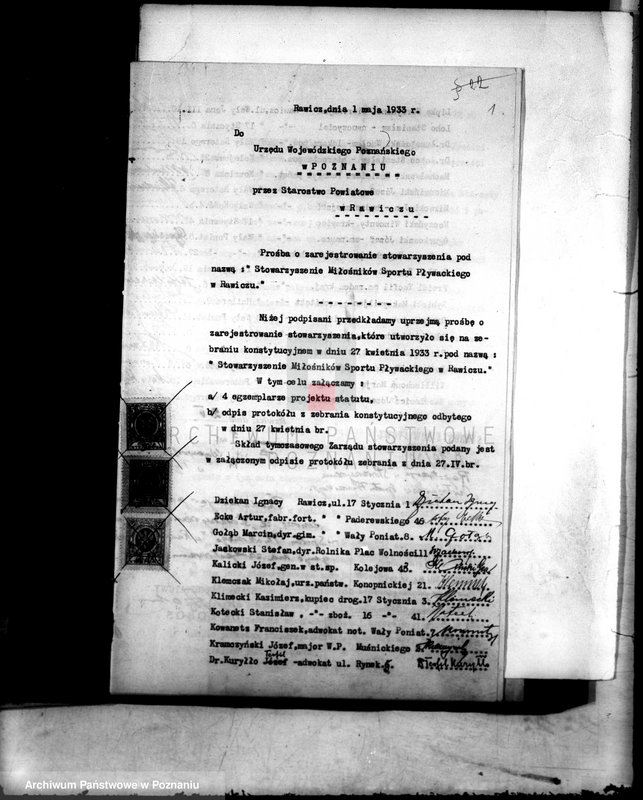 22
1.
Rawicz,dnia 1 maja 1933 r.
Do
Urzędu Wojewódzkiego Poznańskiego
w P O Z N A N I U
przez Starostwo Powiatowe
w R a w i c z u
Prośba o zarejestrowanie stowarzyszenia pod
nazwą :" Stowarzyszenie Miłośników Sportu Pływackiego
w Rawiczu."
Niżej podpisani przedkładamy uprzejmą prośbę o
zarejestrowanie stowarzyszenia,które utworzyło się na ze-
braniu konstytucyjnem w dniu 27 kwietnia 1933 r.pod nazwą :
" Stowarzyszenie Miłośników Sportu Pływackiego w Rawiczu."
W tym celu załączamy :
a/ 4 egzemplarze projektu statutu,
b/ odpis protokółu z zebrania konstytucyjnego odbytego
w dniu 27 kwietnia br.
Skład tymczasowego Zarządu stowarzyszenia podany jest
w załączonym odpisie protokółu zebrania z dnia 27.IV.br.
ARCHIWUM PAŃSTWOWE
Dziekan Ignacy Rawicz,ul.17 Stycznia 1
Ecke Artur,fabr.fort. " " Paderewskiego 46
Gołąb Marcin,dyr.gim. " " Wały Poniat.8. M. Gołąb
Jaskowski Stefan,dyr.Rolnika Plac Wolności11
Kalicki Józef,gen.w st.sp. Kolejowa 48.
Klemczak Mikołaj,urz.państw. Konopnickiej 21.
Klimecki Kazimierz,kupiec drog.17 Stycznia 3.
Kotecki Stanisław , -"- zboż. 16 -"- 41.
Kowanetz Franciszek,adwokat not. Wały Poniat.7
Kramczyński Józef,major W.P. Muśnickiego
Dr.Kuryłło Józef Teofil -adwokat ul. Rynek Teofil Kuryłło
Archiwum Państwowe w Poznaniu